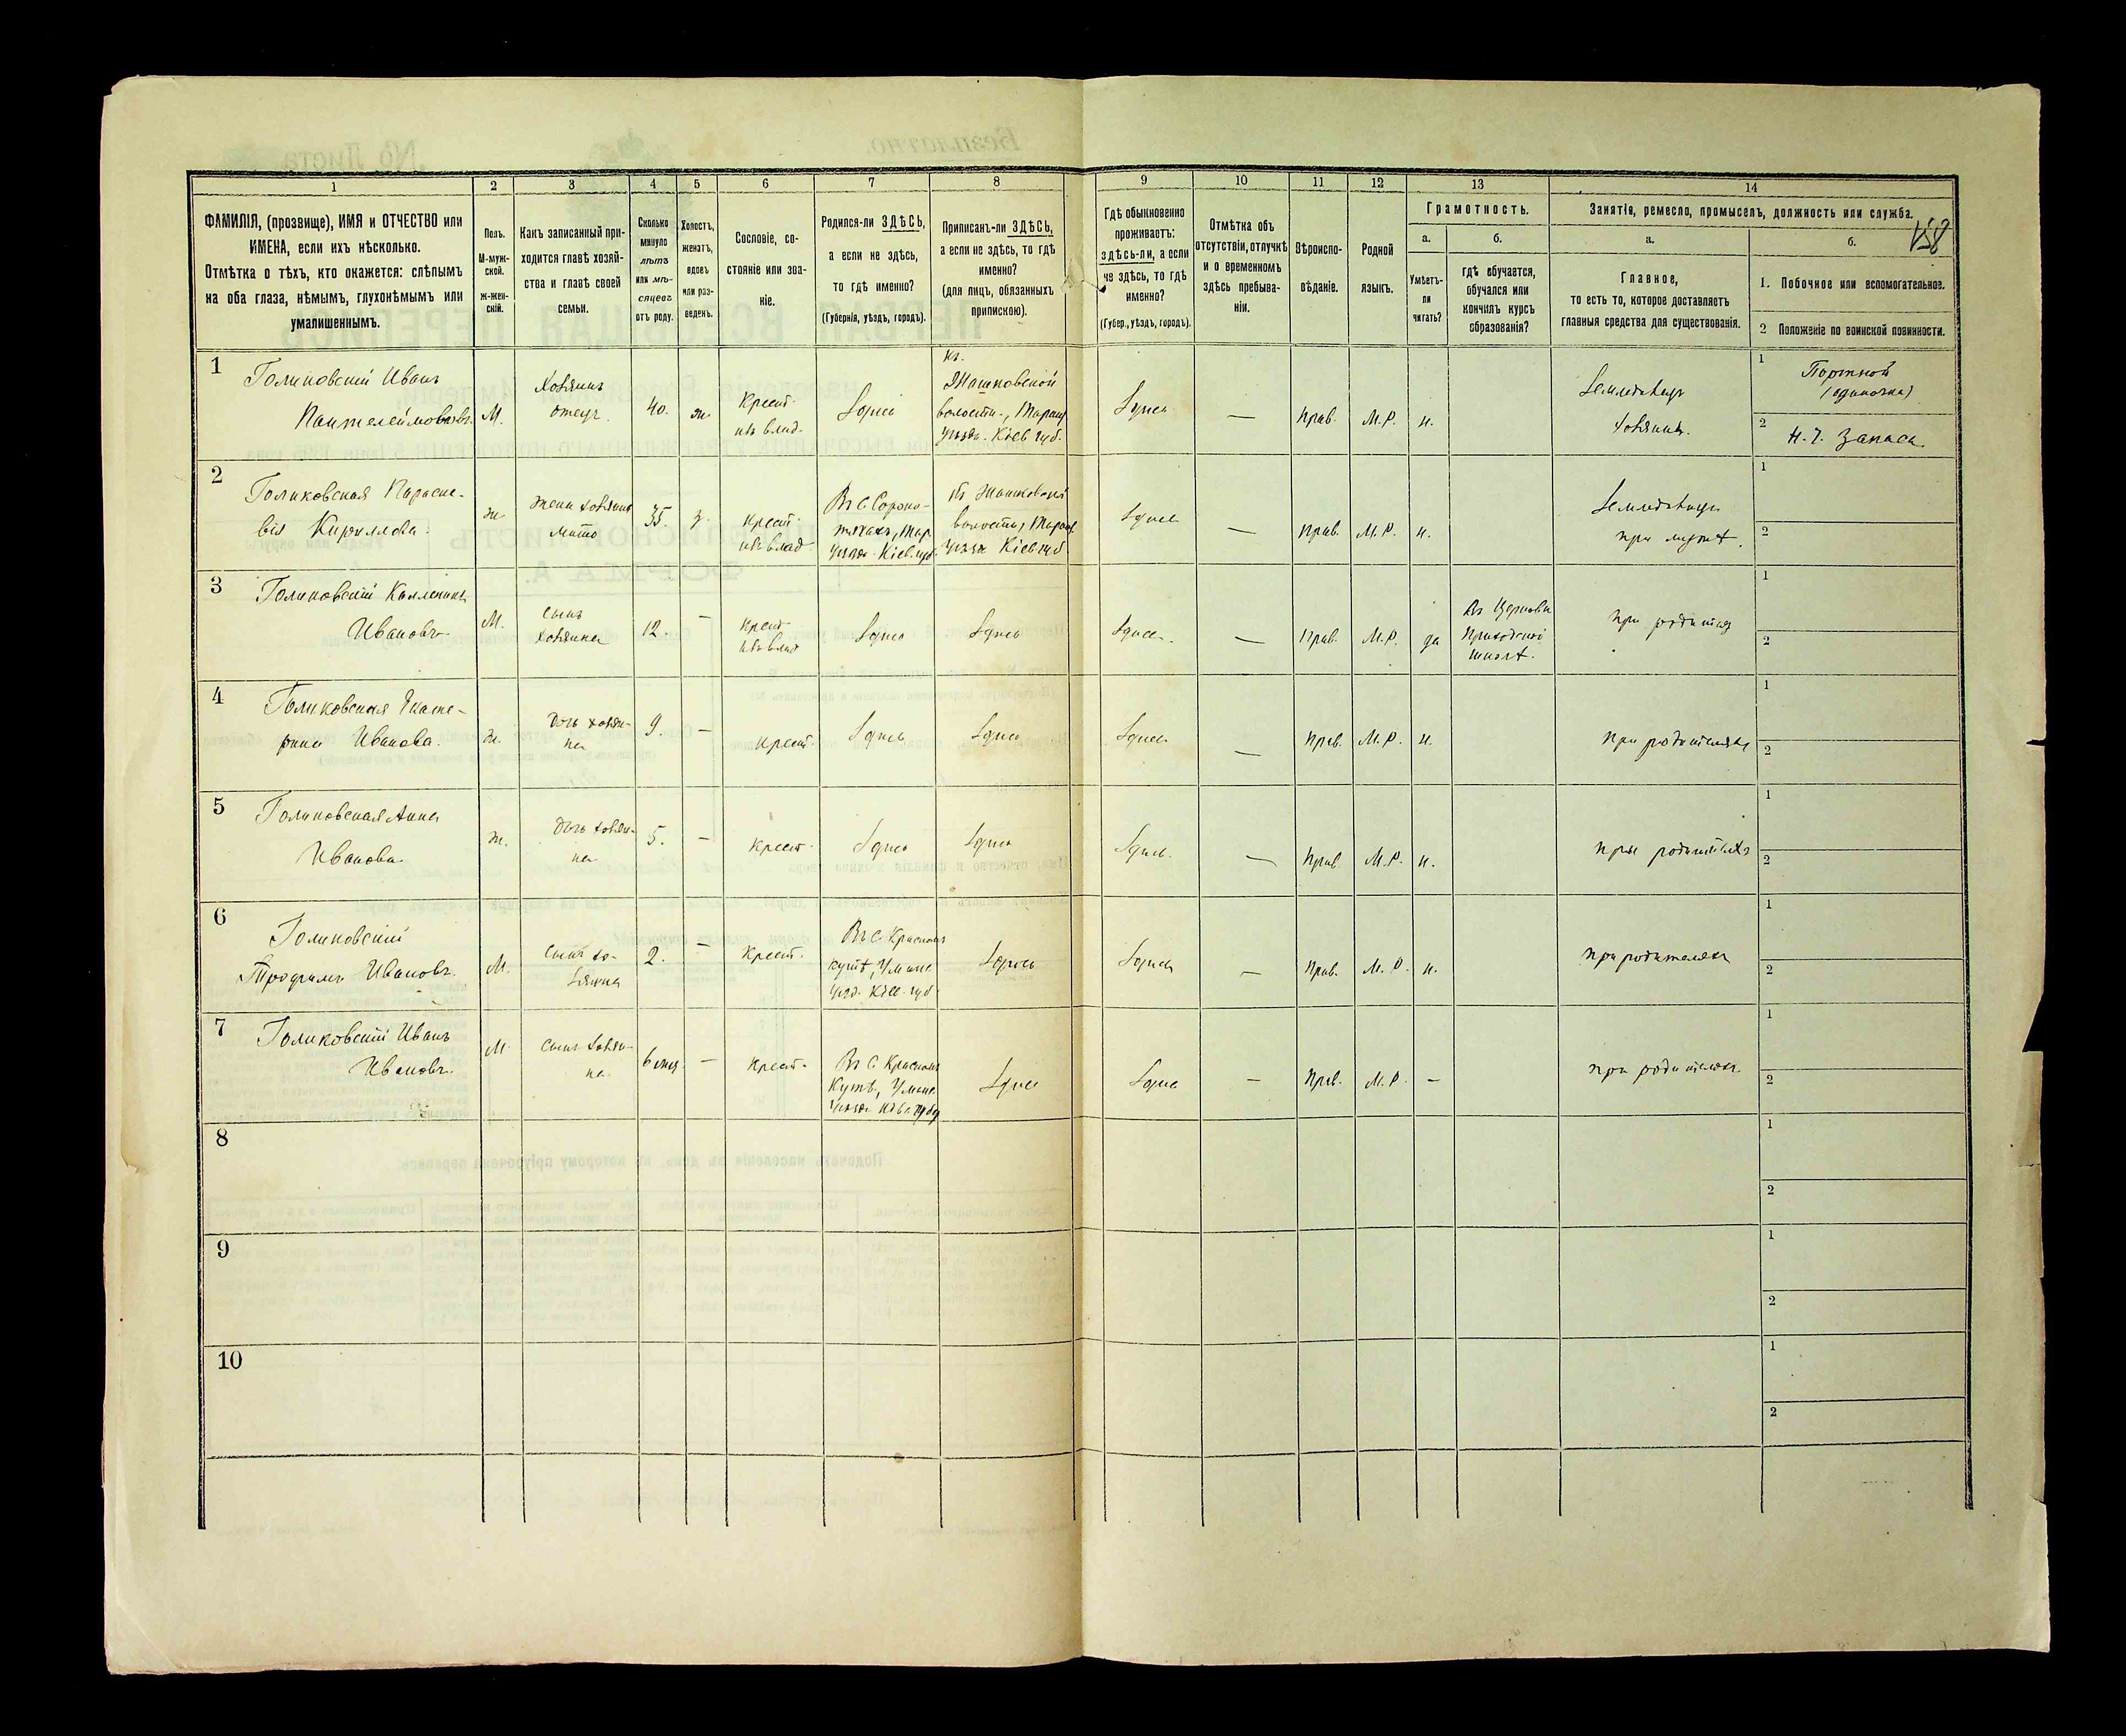 1 2 3 4 5 6 7 8 9 10 11 12 13 14
ФАМИЛІЯ, (прозвище), ИМЯ и ОТЧЕСТВО или
ИМЕНА, если ихъ нѣсколько.
Отмѣтка о тѣхъ, кто окажется: слѣпымъ
на оба глаза, нѣмымъ, глухонѣмымъ или
умалишеннымъ.
Полъ.
М-муж-
ской.
Ж-жен-
скій.
Какъ записанный при-
ходится главѣ хозяй-
ства и главѣ своей
семьи.
Сколько
минуло
лѣтъ
или мѣ-
сяцевъ
отъ роду.
Холостъ,
женатъ,
вдовъ
или раз-
веденъ.
Сословіе, со-
стояніе или зва-
ніе.
Родился-ли ЗДѢСЬ,
а если не здѣсь,
то гдѣ именно?
(Губернія, уѣздъ, городъ).
Приписанъ-ли ЗДѢСЬ,
а если не здѣсь, то гдѣ
именно?
(для лицъ, обязанныхъ
припискою).
Гдѣ обыкновенно
проживаетъ:
здѣсь-ли, а если
не здѣсь, то гдѣ
именно?
(Губер., уѣздъ, городъ).
Отмѣтка объ
отсутствіи, отлучкѣ
и о временномъ
здѣсь пребыва-
ніи.
Вѣроиспо-
вѣданіе.
Родной
языкъ.
Грамотность.
а.
Умѣетъ-
ли
читать?
б.
гдѣ обучается,
обучался или
кончилъ курсъ
образованія?
Занятія, ремесло, промыселъ, должность или служба.
158
а.
Главное,
то есть то, которое доставляетъ
главныя средства для существованія.
б.
1. Побочное или вспомогательное.
2 Положеніе по воинской повинности.
1
Голиковскій Иванъ
Пантелеймоновъ
М.
Хозяинъ
отецъ
40.
ж.
Крест.
Здѣсь
Къ
Жашковской
волости, Таращ
уѣзда. Кіев губ.
Здѣсь
—
Прав.
М.Р.
н.
Земледѣлец
хозяинъ.
1
Портной
(одиночка)
2
Н. Ч. Запаса
2
Голиковская Параске-
вія Кириллова
ж
Жена хозяина
мать
35.
з.
крест.
Въ С Сороко-
тягахъ, Тар.
уѣзда Кіев. губ.
Къ Жашковской
волости, Таращ
уѣзда Кіев губ
Здѣсь
—
Прав.
М.Р.
н.
Земледѣлец
при мужѣ.
1
2
3
Голиковскій Каленикъ
Ивановъ
М.
Сынъ
хозяина
12.
—
крест
Здѣсь
Здѣсь
Здѣсь
—
Прав.
М.Р.
да
Въ Церковно
Приходской
школѣ.
при родител
1
2
4
Голиковская Екате-
рина Иванова.
ж.
Дочь хозяи-
на
9.
—
крест.
Здѣсь
Здѣсь
Здѣсь
—
Прав.
М.Р.
н.
при родителяхъ
1
2
5
Голиковская Анна
Иванова
ж.
Дочь хозяи-
на
5.
—
крест.
Здѣсь
Здѣсь
Здѣсь.
—
Прав
М.Р.
н.
при родителяхъ
1
2
6
Голиковскій
Трофимъ Ивановъ.
М.
Сынъ хо-
зяина
2.
—
крест.
Въ С. Красномъ
кутѣ, Уманс
уѣзд. Кіев. губ.
Здѣсь
Здѣсь
—
Прав.
М.Р.
н.
при родителяхъ
1
2
7
Голиковскій Иванъ
Ивановъ.
М
Сынъ хозяи-
на.
6 мѣс.
—
крест.
Въ С. Красномъ
Кутѣ, Уманс.
Здѣсь
Здѣсь
—
Прав.
М.Р.
—
при родителяхъ
1
2
8
1
2
9
1
2
10
1
2